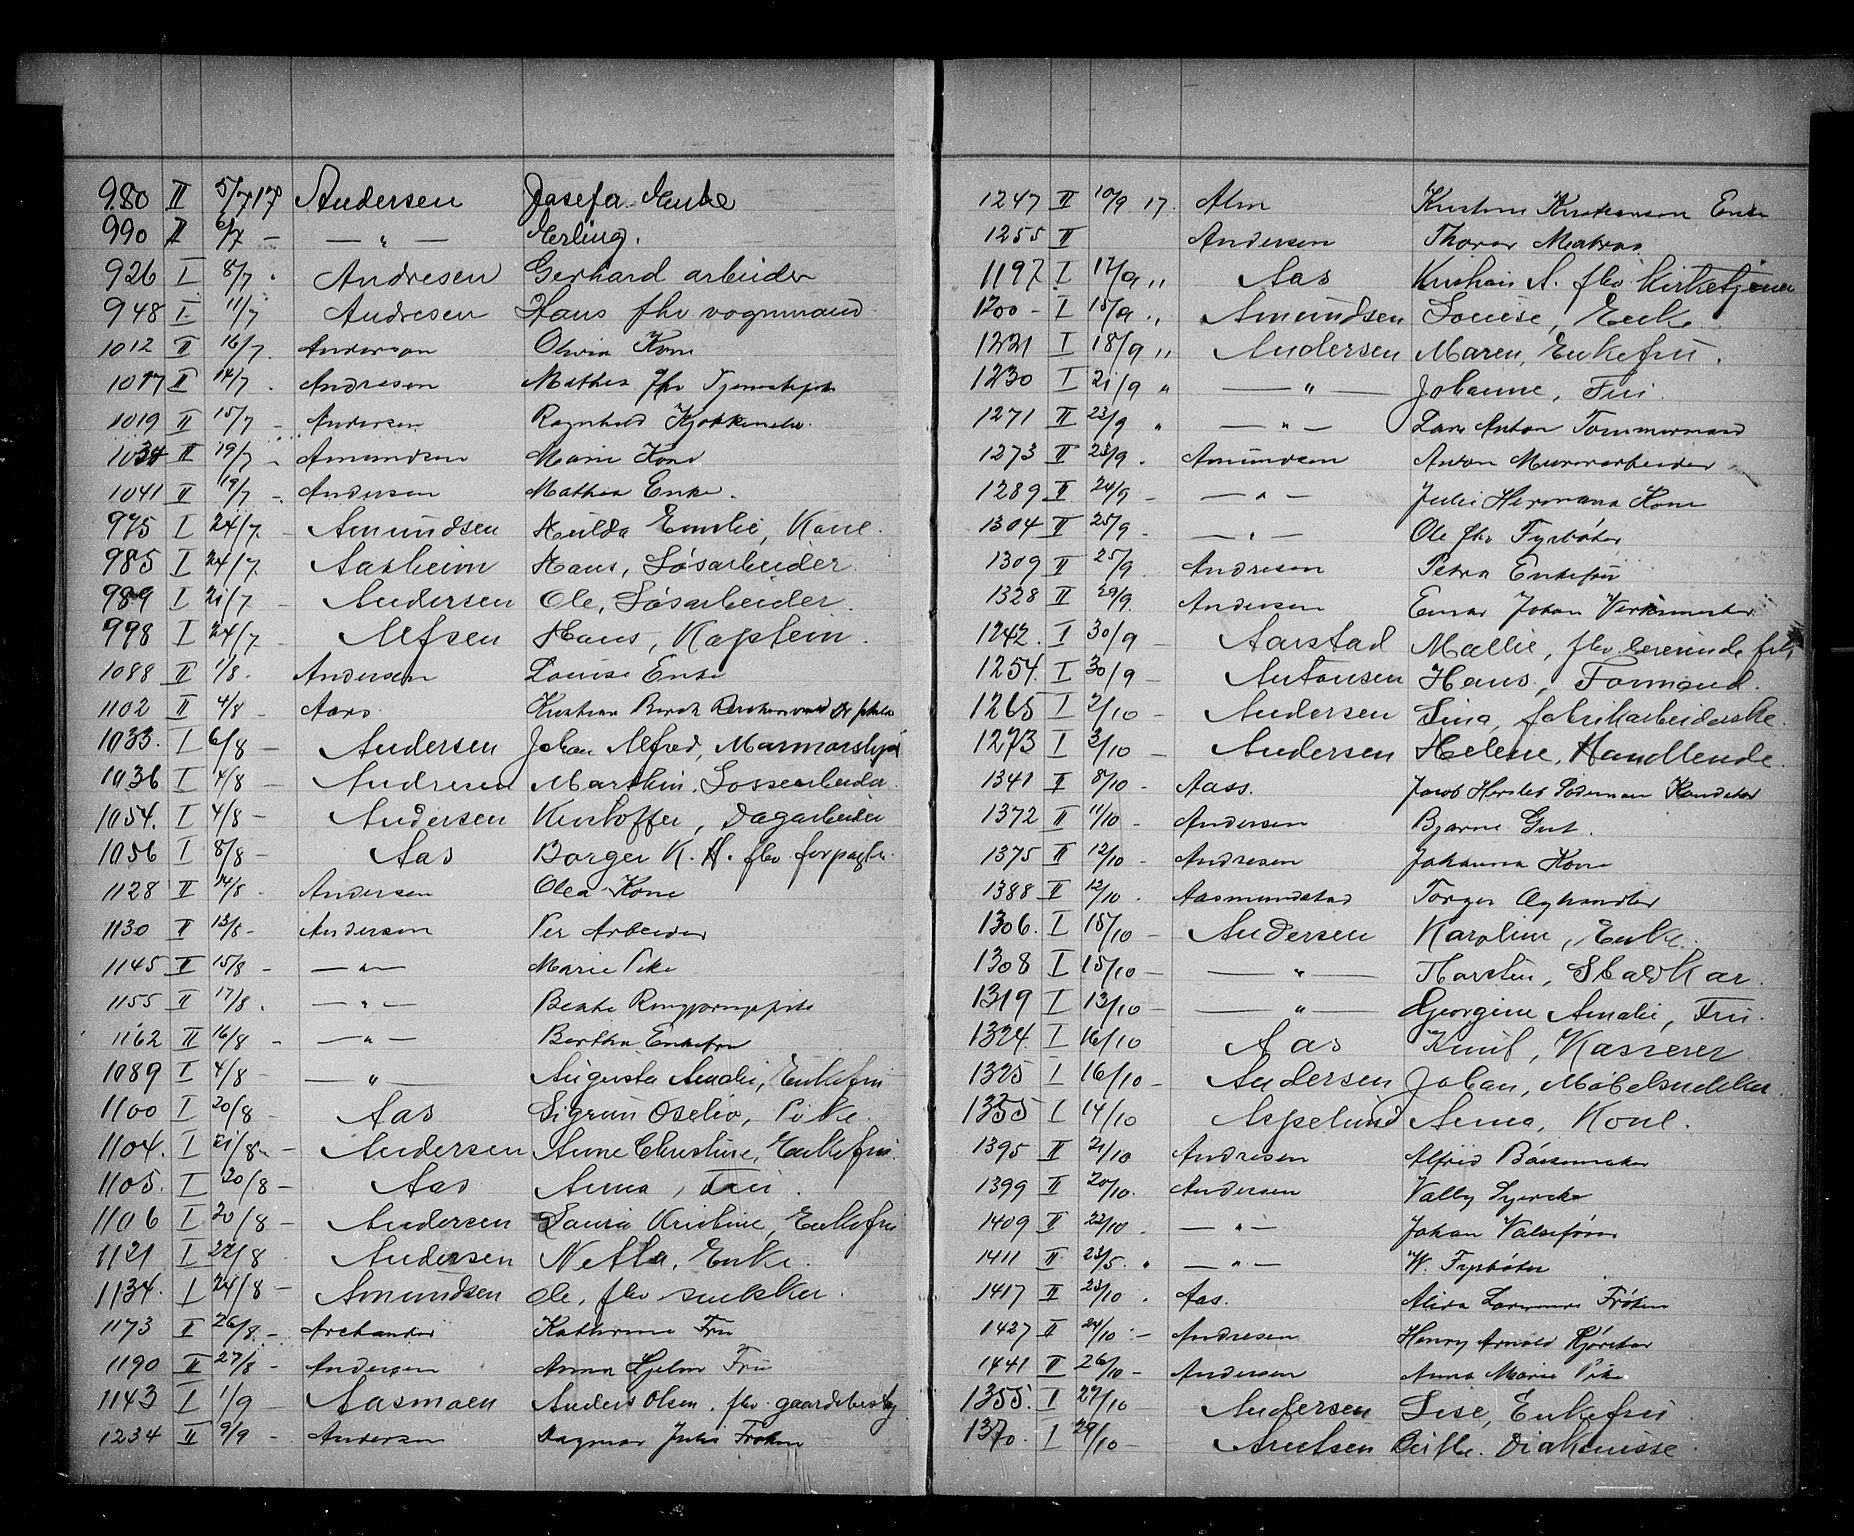 980 II 5/7 17 Andersen Josefa Enke
990 II 6/7 - — " — Erling.
926 I 8/7 Andresen Gerhard arbeider
948 I 11/7 Andresen Hans fhv vognmand
1012 II 16/7 Andersen Olivia Kone
1017 II 14/7 Andresen Mathea fhv
1019 II 15/7 - Andersen Ragnhild
1034 II 19/7 - Amundsen Marie Kone
1041 II 19/7 - Andersen Mathea Enke.
975 I 24/7 - Amundsen Hulda Emilie, Kone.
985 I 24/7 Aasheim Hans, Løsarbeider.
989 I 21/7 - Andersen Ole, Løsarbeider.
998 I 24/7 - Alfsen Hans, Kaptein.
1088 II 1/8 - Andersen Louise Enke
1102 II 4/8 - Aars Kristian Birch
1033. I 6/8 - Andersen Johan Alfred,
1036 I 4/8 - Andresen Marthin, Lossearbeider.
1054. I 4/8 - Andersen Kristoffer, Dagarbeider
1056 I 8/8 - Aas Borger K. H. fhv forpagter.
1128 II 14/8 - Andersen Olea Kone
1130 II 13/8 - Andersen Per Arbeider
1145 II 15/8 - — " — Marie Pike
1155 II 17/8 - — " — Beate
1162 II 16/8 - — " — Bertha Enkefru
1089 I 4/8 - — " — Augusta Amalie, Enkefru
1100 I 20/8 - Aas Sigrun Oselio, Pike.
1104. I 21/8 - Andersen Anne Christine, Enkefru.
1105. I 20/8 - Aas Anna, Fru.
1106 I 20/8 - Andersen Laura Kristine, Enkefru
1121 I 22/8 Andersen Netta, Enke.
1134. I 24/8 - Amundsen Ole, fhv snekker.
1173 II 26/8 - Archander Kathrine Fru
1190 II 27/8 - Andersen Anna Hjelm Fru
1143 I 1/9 - Aasmoen Anders Olsen, fhv. gaardbest
1234 II 9/9 - Andersen Dagmar Julie Frøken
1247 II 10/9 17. Alm Kristine Kristiansen Enke
1255 II Andersen Thorar Matros
1197 I 12/9 " Aas Kristian A. fhv Kirketjener
1200 - I 15/9 " Amundsen Louise, Enke.
1221 I 18/9 " Andersen Maren, Enkefru.
1230 I 21/9 " — " — Johanne, Fru.
1271 II 23/9 " — " — Lars Anton Tømmermand
1273 II 23/9 . Amundsen Anton Murerarbeider
1289 II 24/9 - — " — Julie Hermana Kone
1304 II 25/9 - — " — Ole fhv Fyrbøter
1309 II 25/9 Andresen Petra Enkefru
1328 II 29/9 Andersen Einar Johan Verksmester
1242. I 30/9 - Aarstad Mallie, fhv lærerinde frk
1254. I 30/9 - Antonsen Hans, Formand.
1265 I 2/10 - Andersen Lina, fabrikarbeiderske.
1273 I 3/10 - Andersen Helene, Handlende.
1341 II 8/10 - Aass. Jacob Hersleb
1372 II 11/10 - Andersen Bjarne Gut.
1375 II 12/10 - Andresen Johanna Kone
1388 II 12/10 . Aasmundstad Torger
1306. I 15/10 - Andersen Karoline, Enke.
1308 I 15/10 - — " — Thorsten, Staldkar.
1319 I 13/10 - — " — Georgine Amalie, Fru.
1324. I 16/10 Aas Knut, Kasserer.
1325 I 16/10 - Andersen Johan, Møbelsnekker.
1335 I 14/10 Aspelund Anna, Kone.
1395 II 21/10 Andresen Alfred Bøssemaker
1399 II 20/10. Andersen Valby Syerske
1409 II 22/10. — " — Johan
1411 II 23/5. " — " — W. Fyrbøter
1417 II 23/10 . Aas. Alida Frøken
1427 II 24/10 - Andresen Henry Arnold
1441 II 26/10 - Andersen Anna Marie Pike
1355. I 27/10 - Andersen Lise, Enkefru
1370. I 29/10 - Axelsen Diakonisse.